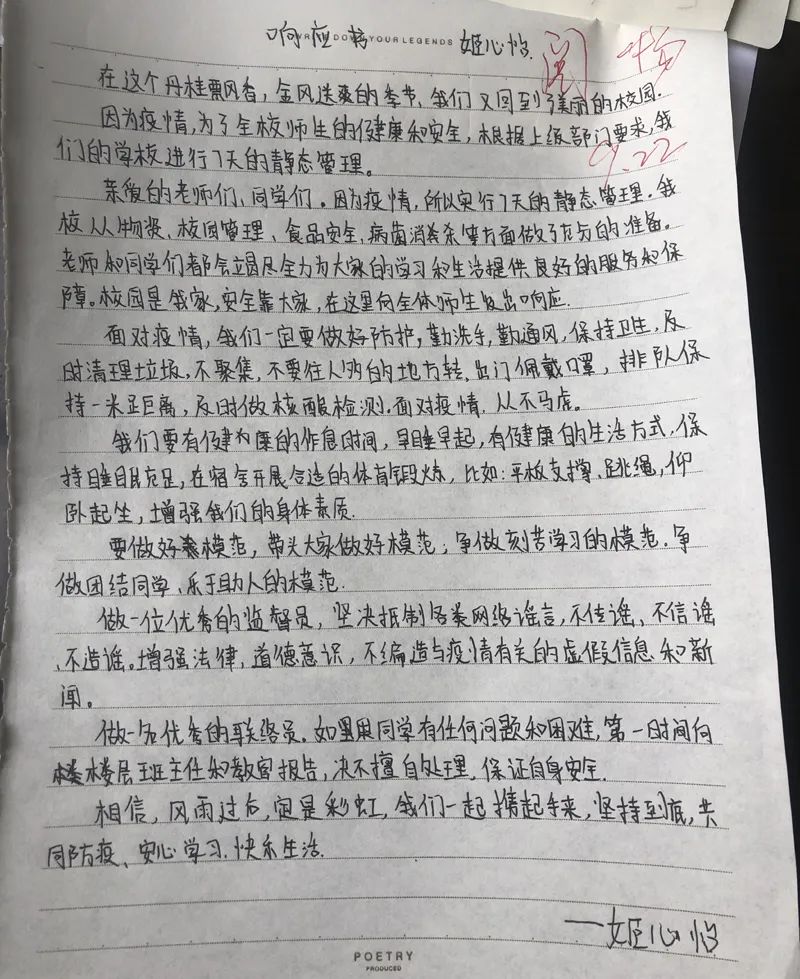 响应书 YOUR LEGENDS 姬心怡
阅
9.22
在这个丹桂飘香,金风送爽的季节,我们又回到了美丽的校园.
因为疫情,为了全校师生的健康和安全,根据上级部门要求,我
们的学校进行7天的静态管理。
亲爱的老师们、同学们。因为疫情,所以实行7天的静态管理.我
校从物资、校园管理、食品安全,病菌消杀等方面做了充分的准备。
老师和同学们都会竭尽全力为大家的学习和生活提供良好的服务和保
障。校园是我家,安全靠大家,在这里向全体师生发出响应.
面对疫情,我们一定要做好防护,勤洗手,勤通风,保持卫生,及
时清理垃圾,不聚集,不要往人多的地方转,出门佩戴口罩,排队保
持一米距离,及时做核酸检测.面对疫情,从不马虎。
我们要有健康的作息时间,早睡早起,有健康的生活方式.保
持睡眠充足,在宿舍开展合适的体育锻炼,比如:平板支撑、跳绳,仰
卧起坐,增强我们的身体素质.
要做好模范,带头大家做好模范;争做刻苦学习的模范.争
做团结同学、乐于助人的模范.
做一位优秀的监督员,坚决抵制各类网络谣言,不传谣、不信谣
、不造谣。增强法律,道德意识,不编造与疫情有关的虚假信息和新
闻。
做一名优秀的联络员.如果同学有任何问题和困难,第一时间向
楼层班主任和教官报告,决不擅自处理,保证自身安全.
相信,风雨过后,定是彩虹,我们一起携起手来,坚持到底,共
同防疫、安心学习.快乐生活.
——姬心怡
POETRY
PRODUCED